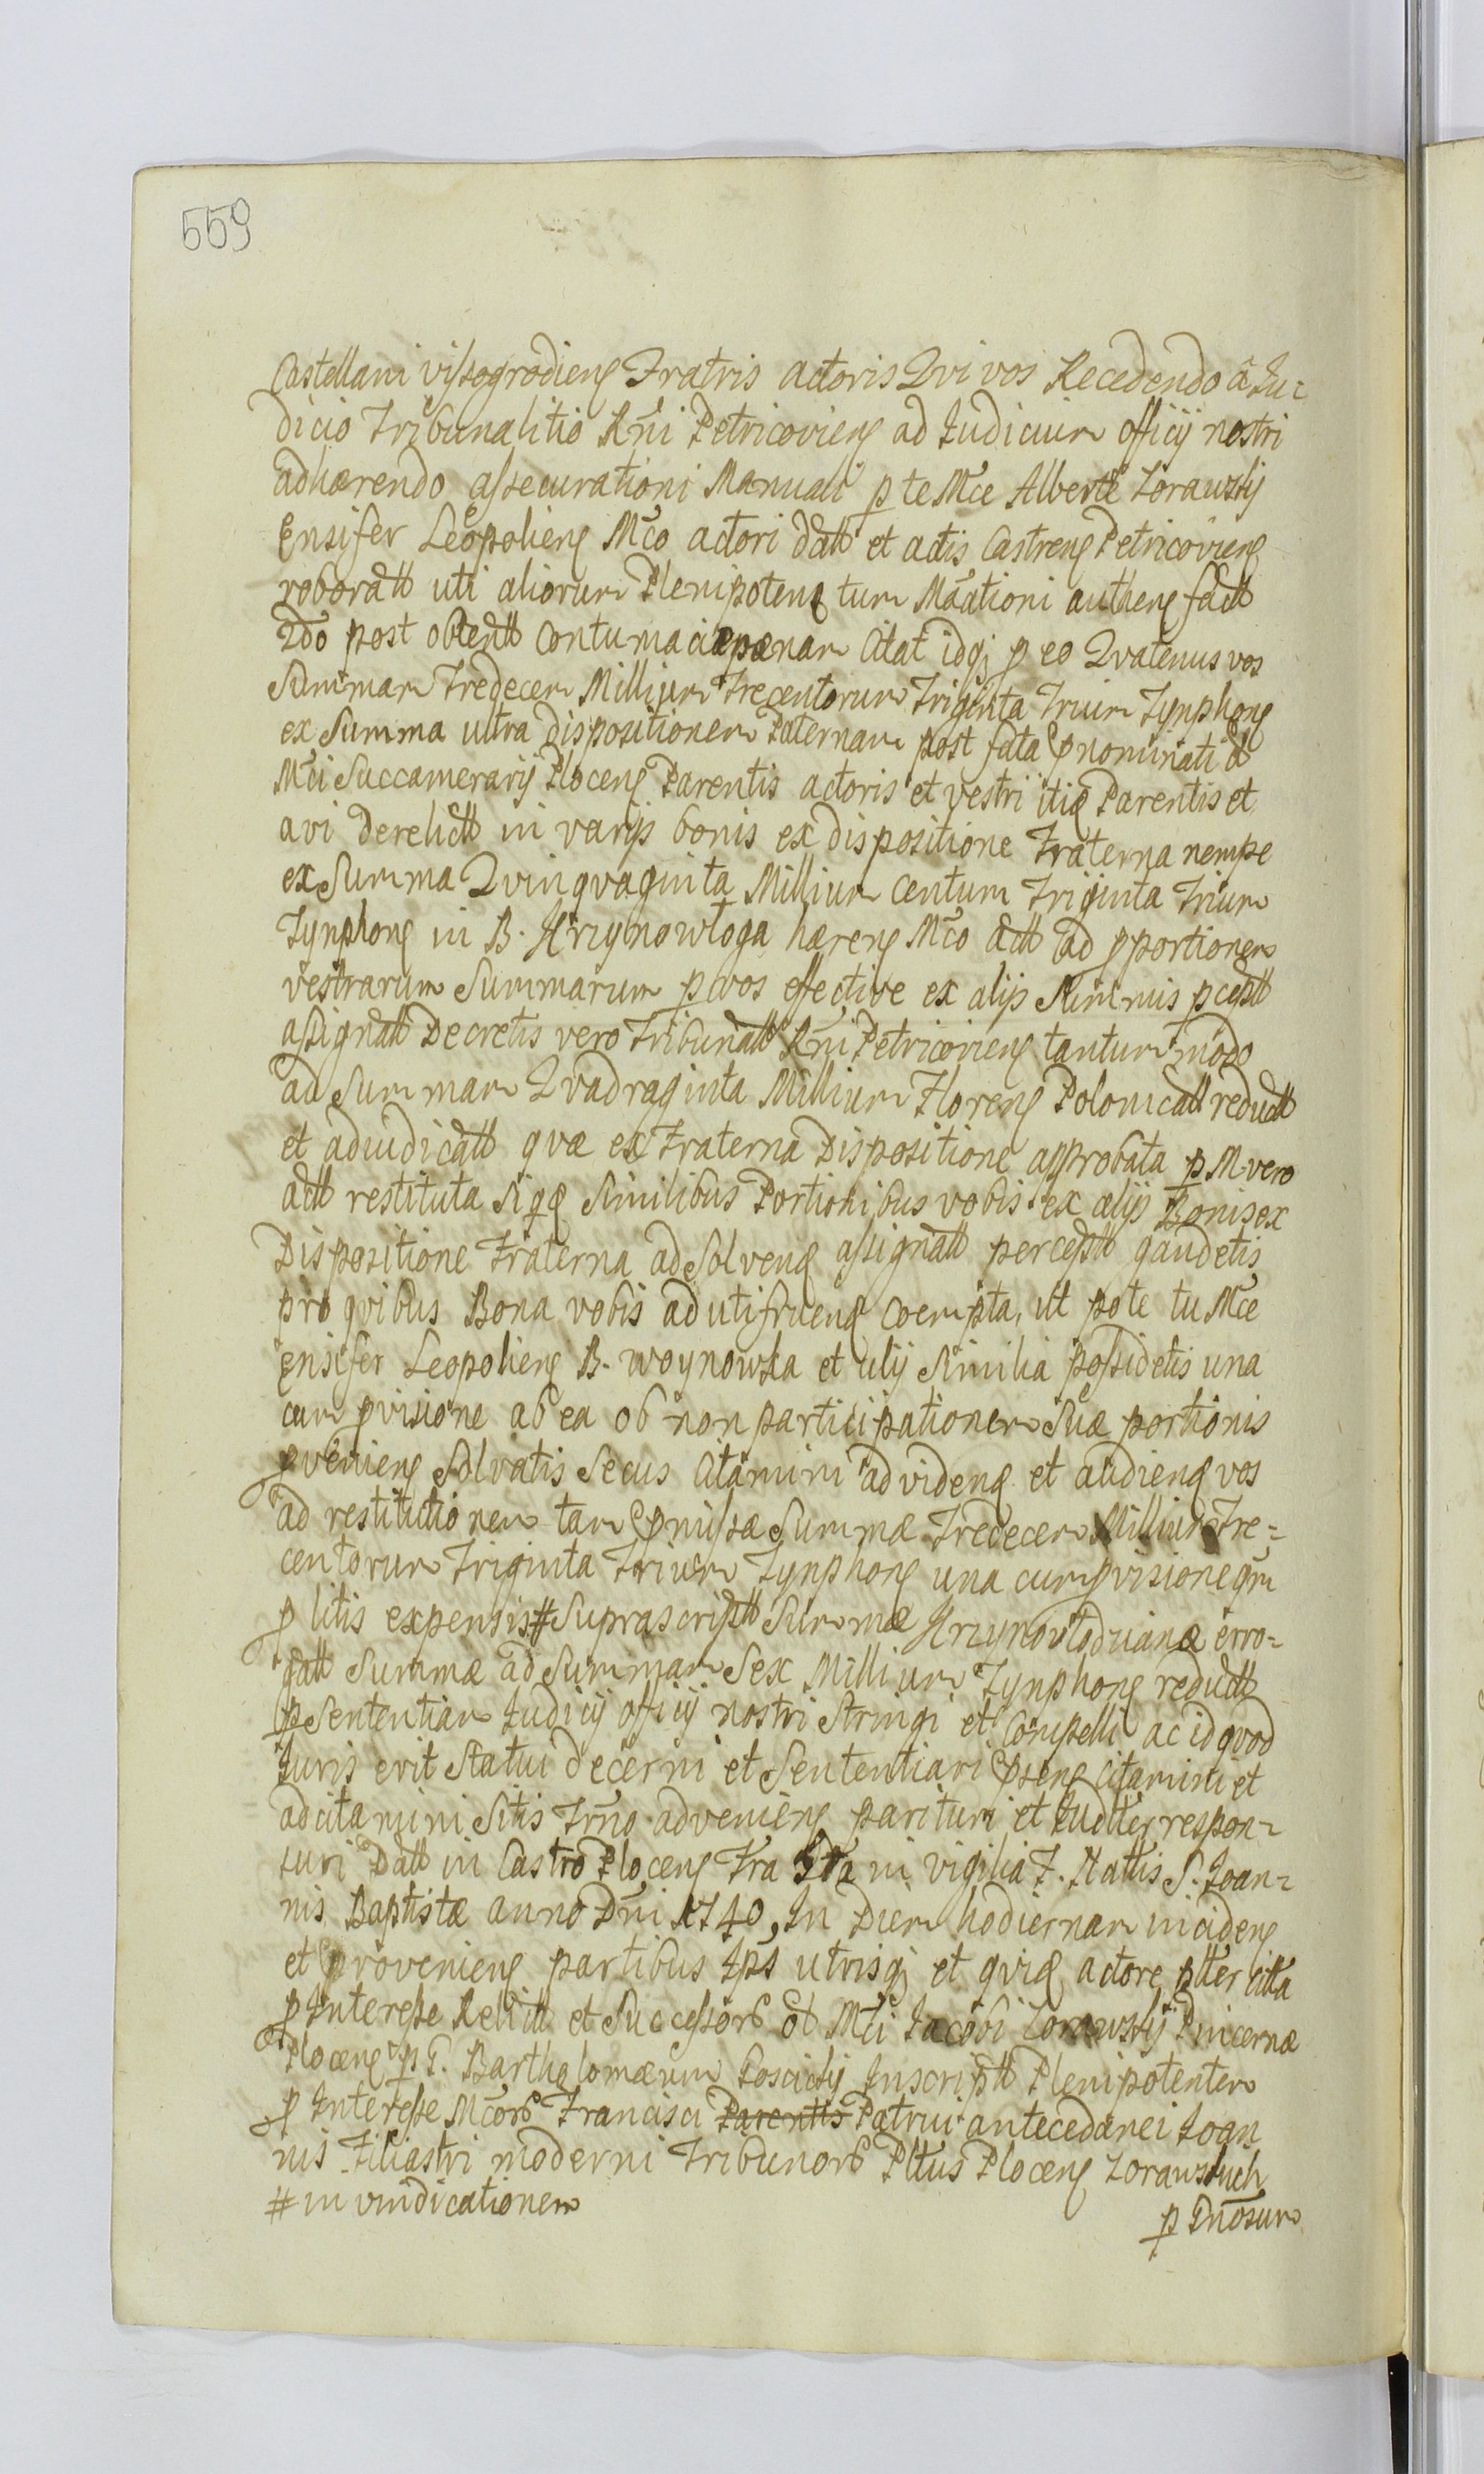 559
Castellani vissogrodieng Fratris actoris Qvi vos Recedendo â Iu=
dicio Tribunalitio Rñi Petricovieng ad Iudicium officij nostri
adhærendo assecurationi Manuali p te Mce Alberte Zorawskj
Ensifer Leopolieng Mco actori datt et actis Castreng Petricovieng
roboratt uti aliorum Plenipoteng tum Mãationi autheng factt
2do post obtentt contumaciæ pænam Citat idqj p eo Qvatenus vos
Summam Tredecem Millium Trecentorum Triginta Trium Tynphong
ex Summa ultra dispositionem Paternam post fata pnominati ol
Mci Succamerarij Ploceng Parentis actoris et vestri itiq Parentis et
avi derelictt in varijs bonis ex dispositione Fraterna nempe
ex Summa Qvinqvaginta Millium Centum Triginta Trium
Tynphong in B. Krzynowloga hæreng Mco actt ad pportionem
vestrarum Summarum p vos effective ex alijs Summis pceptt
assignatt Decretis vero Tribunatt Rñi Petricovieng tantum modo
ad Summam Qvadraginta Millium Floreng Polonicatt reductt
et adiudicatt qvæ ex Fraterna Dispositione approbata p M. vero
actt restituta Siqq Similibus Portionibus vobis ex alijs Bonis ex
Dispositione Fraterna ad Solveng assignatt perceptt gaudetis
pro qvibus Bona vobis ad utifrueng coempta, ut pote tu Mce
ensifer Leopolieng B. woynowska et alij Similia possidetis una
cum pvisione ab ea ob non participationem Suæ portionis
pvenieng Solvatis Secus Citamini ad videng et audieng vos
ad restitutionem tam pmissæ Summæ Tredecem Millium Tre=
centorum Triginta Trium Tynphong una cum pvisione qm
p litis expensis # Suprascriptt Summæ Krzynowlodzianæ erro=
gatt Summæ ad Summam Sex Millium Tynphong reductt
p Sententiam Iudicij officij nostri Stringi et Compelli ac id qvod
Iuris erit Statui decerni et Sententiari pseng Citamini et
adcitamini Sitis Trño advenieng parituri et Iudtter respon=
suri Datt in Castro Ploceng Fra 5ta in vigilia F. Nattis S. Ioan=
nis Baptistæ anno Dñi 1740, In Diem hodiernam incideng
et provenieng partibus Ips utrisqj et qviq actore ptter citta
p Interesse Relictt et Successorb ol Mci Iacobi Zorawskij Pincernæ
Ploceng p G. Bartholomæum Koscickj Inscriptt Plenipotentem
p Interesse Mcorb Francisci Parentis Patrui antecedanei Ioan
nis Filiastri moderni Tribunorb Pltus Ploceng Zorawskich
# in vindicationem
p Gnosum